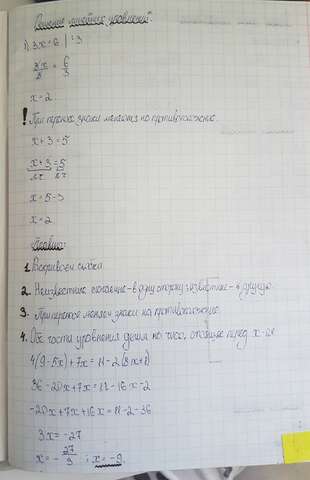 Решение линейных уравнений
1) 3x=6 | :3
3x/3 = 6/3
x=2
! При переносе знаки меняются на противоположные.
x+3=5
x+3=5
x=5-3
x=2
Правило:
1. Раскрываем скобки
2. Неизвестные слагаемые - в одну сторону, известные - в другую.
3. При переносе меняем знаки на противоположные.
4. Обе части уравнения делим на число, стоящее перед x-ом
4(9-5x)+7x=11-2(8x+1)
36-20x+7x=11-16x-2
-20x+7x+16x=11-2-36
3x=-27
x=-27/3 ; x=-9.